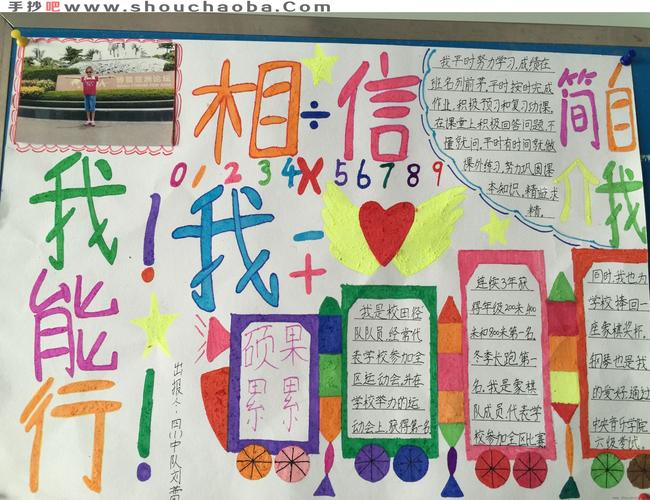 手抄吧www.shouchaoba.com
博鳌亚洲论坛
相÷信
0 1 2 3 4 X 5 6 7 8 9
我
我能行!!
自我简介
我平时努力学习,成绩在
班名列前茅,平时按时完成
作业,积极预习和复习功课,
在课堂上积极回答问题,不
懂就问,平时有时间就做
课外练习,努力巩固课
本知识,精益求
精。
硕果累累
我是校田径
队队员,经常代
表学校参加全
区运动会,并在
学校举办的运
动会上,获得第一名
连续3年获
得年级200米,400
米和800米第一名,
冬季长跑第一
名,我是象棋
队成员代表学
校参加全区比赛
同时,我也为
学校捧回一
座象棋奖杯。
钢琴也是我
的爱好,通过
中央音乐学院
六级考试。
出报人:四(1)中队刘